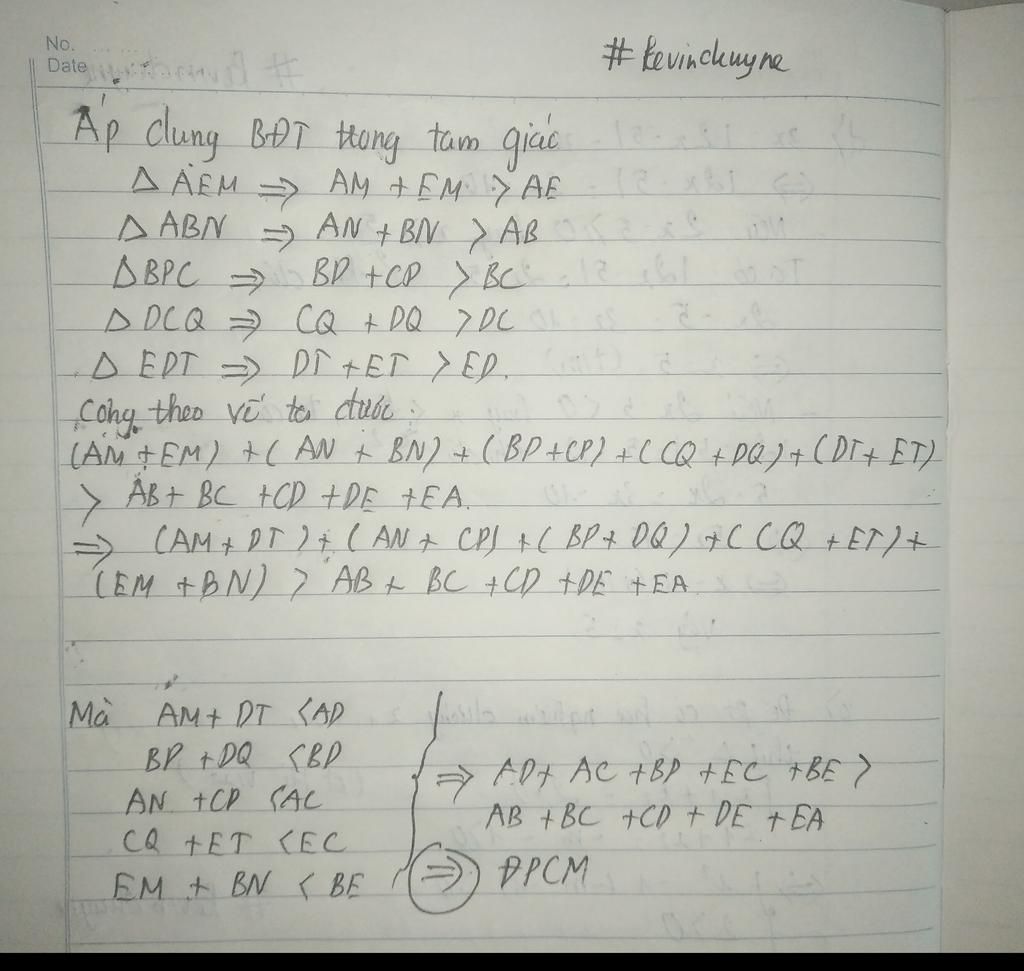 No.
Date
# kevinchuyne
Áp dung BĐT trong tam giác
Δ AEM ⇒ AM + EM > AE
Δ ABN ⇒ AN + BN > AB
Δ BPC ⇒ BP + CP > BC
Δ DCQ ⇒ CQ + DQ > DC
Δ EDT ⇒ DT + ET > ED.
Công theo vế ta được:
(AM + EM) + (AN + BN) + (BP + CP) + (CQ + DQ) + (DT + ET)
> AB + BC + CD + DE + EA.
⇒ (AM + DT) + (AN + CP) + (BP + DQ) + (CQ + ET) +
(EM + BN) > AB + BC + CD + DE + EA
Mà AM + DT < AD
BP + DQ < BD
AN + CP < AC
CQ + ET < EC
EM + BN < BE
⇒ AD + AC + BD + EC + BE >
AB + BC + CD + DE + EA
⇒ ĐPCM